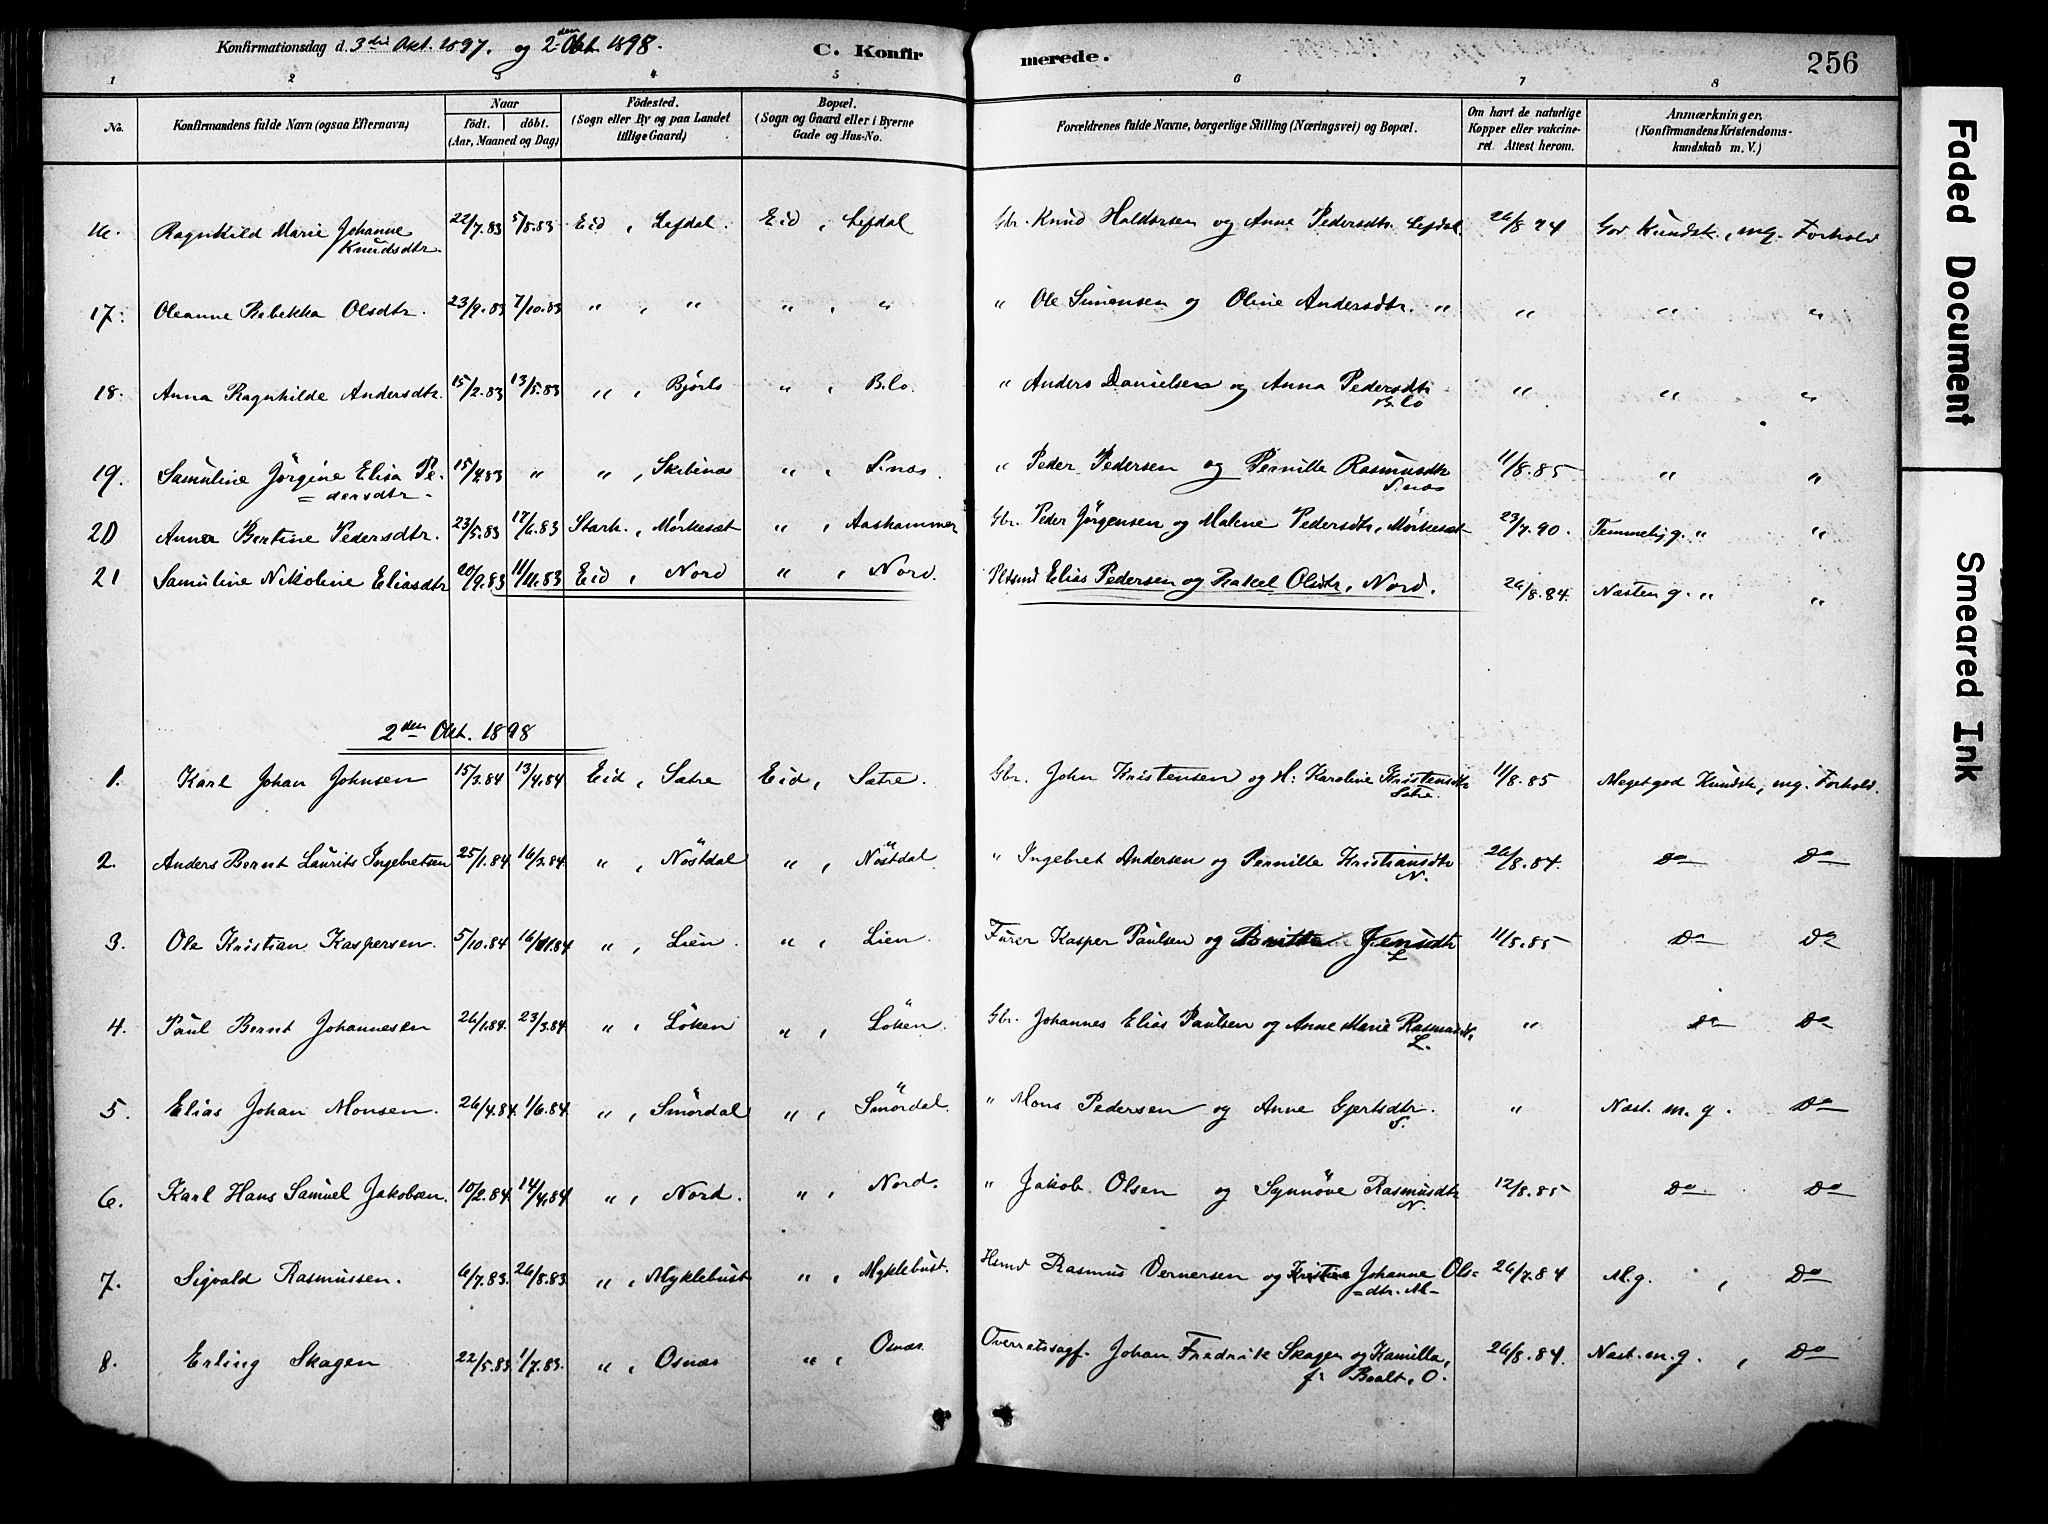 Konfirmationsdag d. 3die Okt. 1897. og 2den Okt. 1898.
C. Konfirmerede.
256
1 2 3 4 5 6 7 8
No.
Konfirmandens fulde Navn (ogsaa Efternavn)
Naar
födt. döbt.
(Aar, Maaned og Dag)
Födested.
(Sogn eller By og paa Landet
tillige Gaard)
Bopæl.
(Sogn og Gaard eller i Byerne
Gade og Hus-No.
Forældrenes fulde Navne, borgerlige Stilling (Næringsvei) og Bopæl.
Om havt de naturlige
Kopper eller vakcine-
ret. Attest herom.
Anmærkninger.
(Konfirmandens Kristendoms-
kundskab m. V.)
16. Ragnhild Marie Johanne 22/7.83 5/8.83 Eid, Lefdal. Eid, Lefdal Gbr. Knud Haldorsen og Anne Pedersdtr. Lefdal. 26/8 84 God Kundsk., mg. Forhold
Knudsdtr.
17. Oleanne Rebekka Olsdtr. 23/9.83 7/10.83 " , " " , " " Ole Simensen og Oline Andersdtr. " " " "
18. Anna Ragnhilde Andersdtr. 15/2.83 13/5.83 " , Bjørlo " , B.lo. " Anders Danielsen og Anna Pedersdtr " " "
B.lo
19. Samuline Jörgine Elisa Pe- 15/4.83 " " , Skibenæs " , S.næs. " Peder Pedersen og Pernille Rasmusdtr 11/8.85 " "
=dersdtr- S.næs
20 Anna Bertine Pedersdtr. 23/5.83 17/6.83 Stårh., Mörkesæt " , Aashammer Gbr. Peder Jörgensen og Malene Pedersdtr, Mörkesæt- 23/7.90. Temmelig g. " "
21 Samuline Nikoline Eliasdtr 20/9.83 11/11.83 Eid , Nord " , Nord. Pltsmd Elias Pedersen og Rakel Olsdtr, Nord. 26/8.84. Næsten g. " "
2den Okt. 1898
1. Karl Johan Johnsen 15/3.84 13/4.84 Eid, Sætre Eid, Sætre. Gbr. John Kristensen og H: Karoline Kristensdtr 11/8.85 Meget god Kundsk, mg. Forhold.
Sætre.
2. Anders Bernt Laurits Ingebretsen 25/1.84 16/3.84 " , Nöstdal " , Nöstdal " Ingebret Andersen og Pernille Kristiansdtr 26/8.84. Do Do
N.
3. Ole Kristian Kaspersen. 5/10.84 16/11.84 " , Lien. " , Lien. Furer Kasper Paulsen og Britte Jensdtr 11/8.85 Do Do
L
4. Paul Bernt Johannesen 26/1.84. 23/3.84 " , Löken " , Löken. Gbr. Johannes Elias Paulsen og Anne Marie Rasmusdtr, " Do Do
L.
5. Elias Johan Monsen. 26/4.84. 1/6.84. " , Smördal " , Smördal. " Mons Pedersen og Anne Gjertsdtr. " Næst. m. g. Do
S.
6. Karl Hans Samuel Jakobsen. 10/2.84 14/4.84 " , Nord. " , Nord. " Jakob Olsen og Synnöve Rasmusdtr 12/8.85 Do. Do
N.
7. Sigvald Rasmussen. 6/7.83. 26/8.83. " , Myklebust " , Myklebust. Hsmd Rasmus Vernersen og Kristine Johanne Ols- 26/7.84 M.g. , Do
=dtr. M-
8. Erling Skagen 22/5.83. 1/7.83. " , Osnæs " , Osnæs. Overretssagf. Johan Fredrik Skagen og Kamilla, 26/8.84. Næst. m. g. , Do
f: Boalt, O.
Faded Document
Smeared Ink